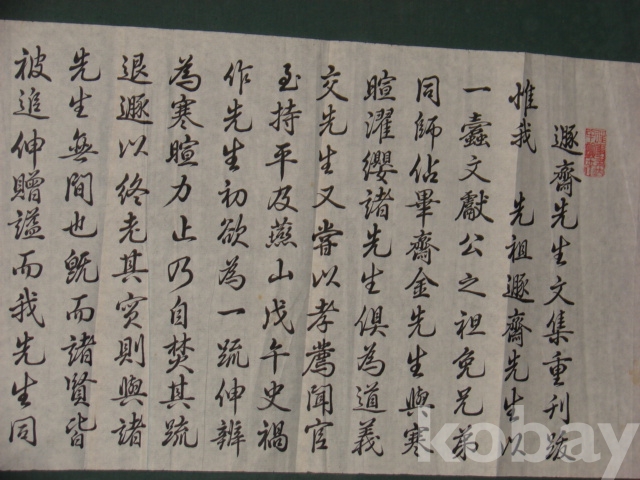 遯齋先生文集重刊跋
惟我 先祖遯齋先生以
一蠹文獻公之袒免兄弟
同師佔畢齋金先生與寒
暄濯纓諸先生俱為道義
交先生又嘗以孝薦聞官
至持平及燕山戊午史禍
作先生初欲為一疏伸辨
為寒暄力止乃自焚其疏
退遯以終老其實則與諸
先生無間也旣而諸賢皆
被追伸贈諡而我先生同
kobay